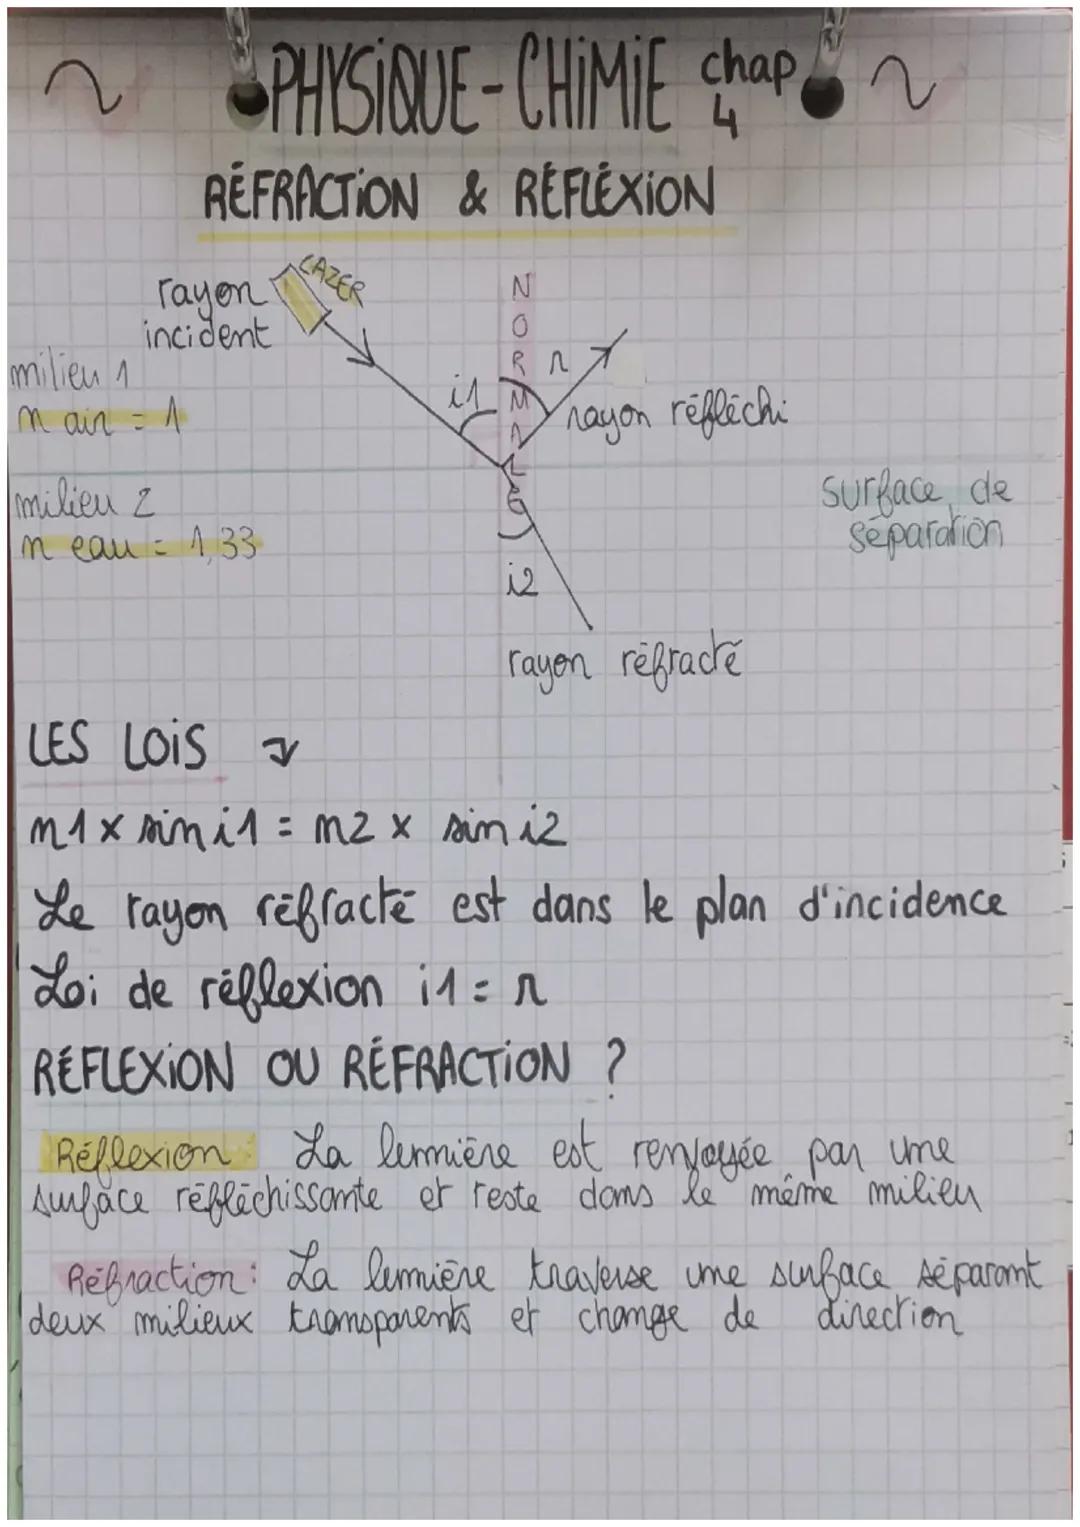 PHYSIQUE-CHIMIE chap 4
RÉFRACTION & RÉFLÉXION
LAZER
rayon incident
NORMALE
milieu 1
n air = 1
i1
r
rayon réfléchi
milieu 2
n eau = 1,33
surface de séparation
i2
rayon réfracté
LES LOIS
n1 x sin i1 = n2 x sin i2
Le rayon réfracté est dans le plan d'incidence
Loi de réflexion i1 = r
RÉFLEXION OU RÉFRACTION ?
Réflexion : La lumière est renvoyée par une
surface réfléchissante et reste dans le même milieu
Réfraction : La lumière traverse une surface séparant
deux milieux transparents et change de direction